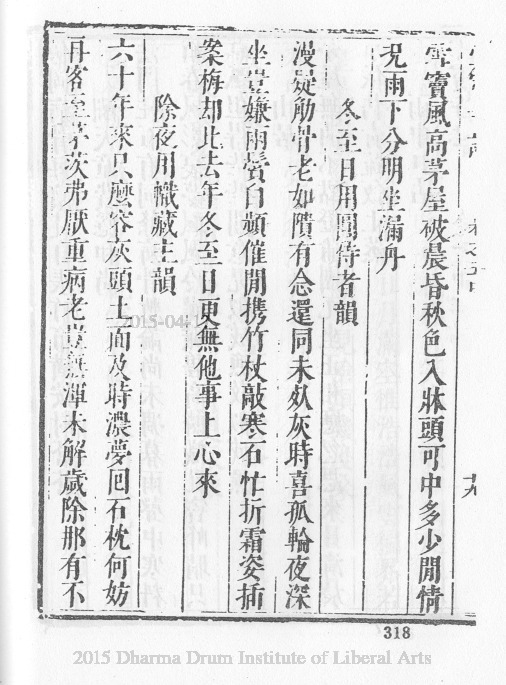 雪竇風高茅屋破晨昏秋色入牀頭可中多少閒情
況雨下分明坐漏丹
冬至日用圓侍者韻
漫疑觔骨老如隤有念還同未死灰時喜孤輪夜深
坐豈嫌兩鬢白頻催閒携竹杖敲寒石忙折霜姿插
案梅却比去年冬至日更無他事上心來
除夜用幟藏主韻
六十年來只麼容灰頭土面及時濃夢回石枕何妨
再客至茅茨弗厭重病老豈無渾未解歲除那有不
十九
318
2015-04-
2015 Dharma Drum Institute of Liberal Arts